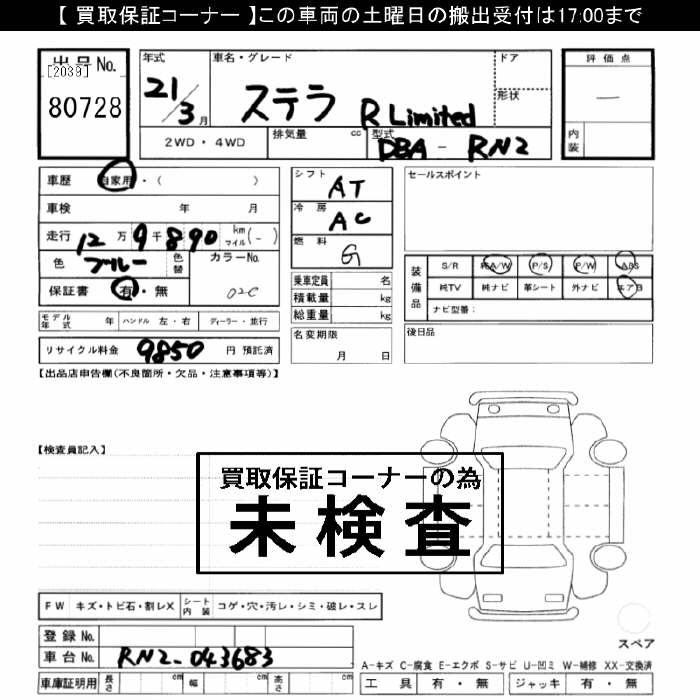 【 買取保証コーナー 】この車両の土曜日の搬出受付は17:00まで
出品No.
[2039]
80728
年式
21/3月
車名・グレード
ステラ R Limited
ドア
形状
2WD・4WD
排気量 cc
型式
DBA - RN2
評価点
―
内装
車歴 自家用・( )
車検 年 月
走行 12万9千890 km マイル (-)
色 ブルー 色替
カラーNo.
02C
保証書 有・無
モデル年式 年 ハンドル 左・右 ディーラー・並行
リサイクル料金 9850 円 預託済
シフト AT
冷房 AC
燃料 G
乗車定員 名
積載量 kg
総重量 kg
名変期限
月 日
セールスポイント
装備品
S/R 純A/W P/S P/W ABS
純TV 純ナビ 革シート 外ナビ エアB
ナビ型番:
後日品
【出品店申告欄(不良箇所・欠品・注意事項等)】
【検査員記入】
買取保証コーナーの為
未検査
FW キズ・トビ石・割レX シート内装 コゲ・穴・汚レ・シミ・破レ・スレ
スペア
登録No.
車台No. RN2-043683
車庫証明用 長さ cm 幅 cm 高さ cm
A-キズ C-腐食 E-エクボ S-サビ U-凹ミ W-補修 XX-交換済
工具 有・無 ジャッキ 有・無